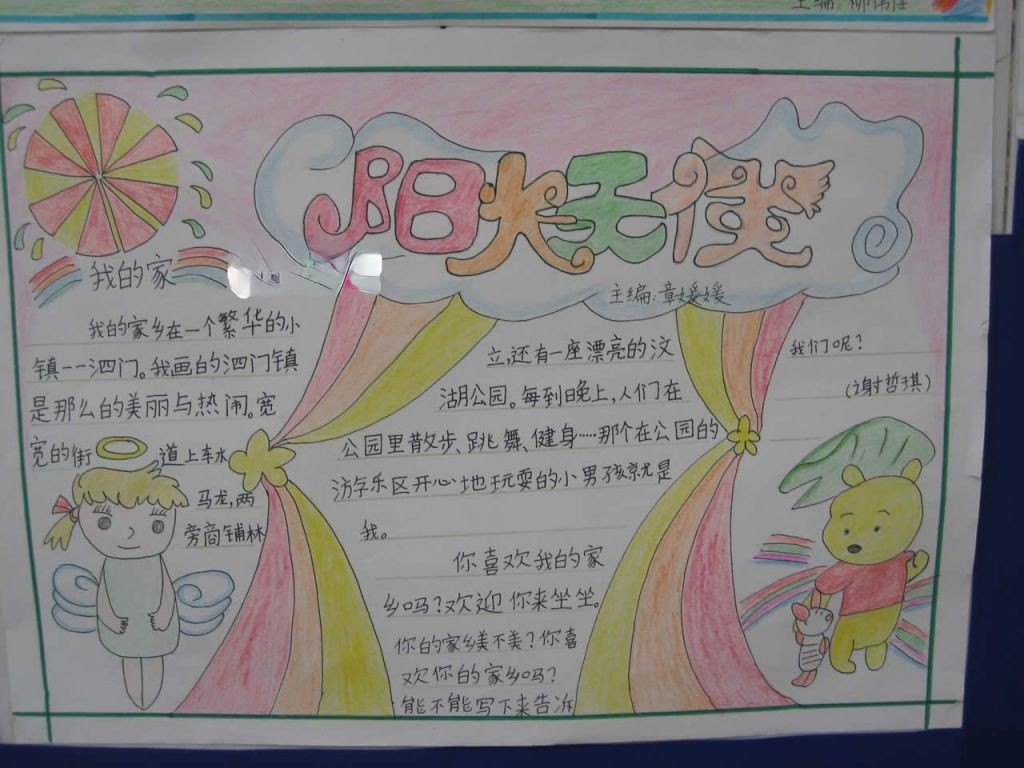 主编:柳伟佳
阳光天使
主编:章媛媛
我的家
我的家乡在一个繁华的小
镇——泗门。我画的泗门镇
是那么的美丽与热闹。宽
宽的街道上车水
马龙,两
旁商铺林
立,还有一座漂亮的汶
湖公园。每到晚上,人们在
公园里散步、跳舞、健身……那个在公园的
游乐区开心地玩耍的小男孩就是
我。
你喜欢我的家
乡吗?欢迎你来坐坐。
你的家乡美不美?你喜
欢你的家乡吗?
能不能写下来告诉
我们呢?
(谢哲琪)